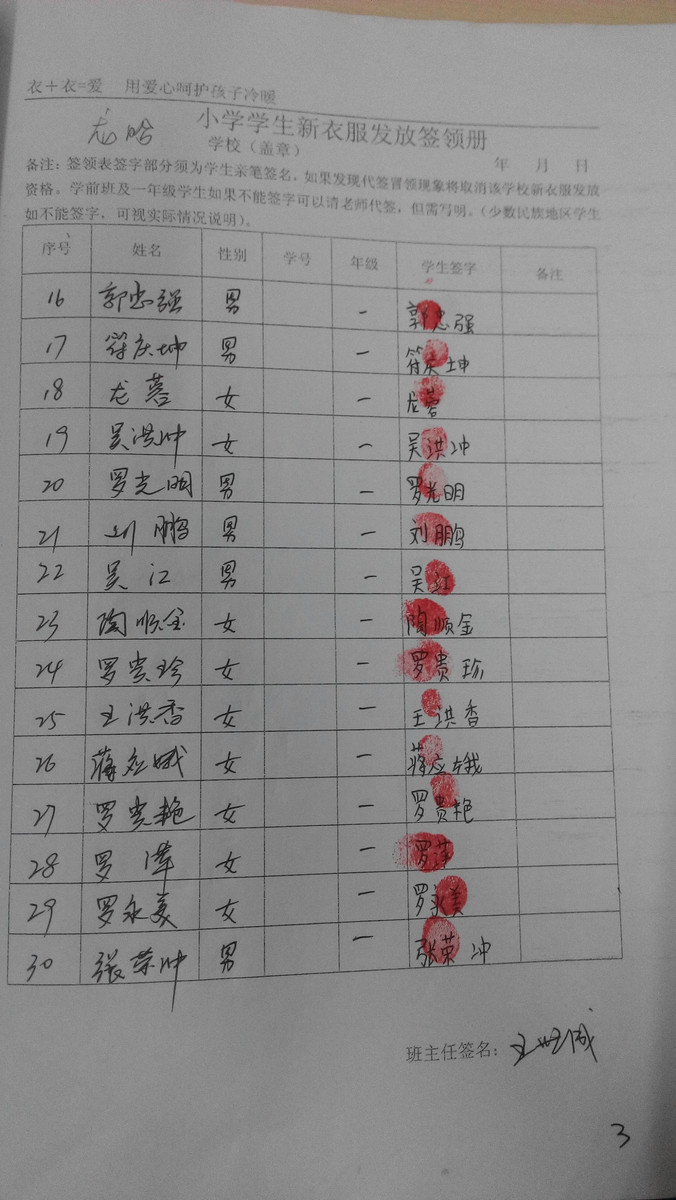 衣+衣=爱 用爱心呵护孩子冷暖
小学学生新衣服发放签领册
龙哈 学校（盖章） 年 月 日
备注：签领表签字部分须为学生亲笔签名，如果发现代签冒领现象将取消该学校新衣服发放
资格。学前班及一年级学生如果不能签字可以请老师代签，但需写明。（少数民族地区学生
如不能签字，可视实际情况说明）。
序号 姓名 性别 学号 年级 学生签字 备注
16 郭忠强 男 一 郭忠强
17 符庆坤 男 一 符庆坤
18 龙蓉 女 一 龙蓉
19 吴洪冲 女 一 吴洪冲
20 罗光明 男 一 罗光明
21 刘鹏 男 一 刘鹏
22 吴江 男 一 吴江
23 陶顺金 女 一 陶顺金
24 罗贵珍 女 一 罗贵珍
25 王洪香 女 一 王洪香
26 蒋应娥 女 一 蒋应娥
27 罗贵艳 女 一 罗贵艳
28 罗萍 女 一 罗萍
29 罗永美 女 一 罗永美
30 张荣冲 男 一 张荣冲
班主任签名：王
3